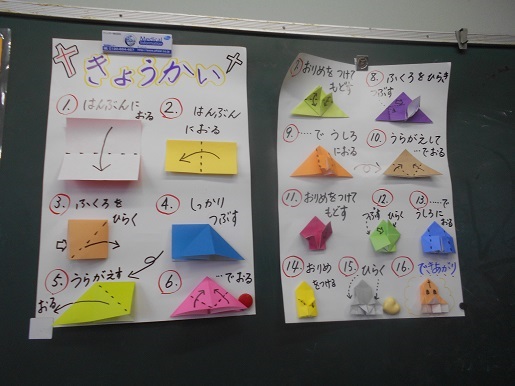 Medical
きょうかい
1. はんぶんに
おる
2. はんぶん
におる
3. ふくろを
ひらく
4. しっかり
つぶす
5. うらがえす
おる
6. …でおる
7. おりめをつけて
もどす
8. ふくろをひらき
つぶす
9. …で うしろ
におる
10. うらがえして
…でおる
11. おりめをつけて
もどす
12. ひらく
つぶす
13. ……で
うしろに
おる
14. おりめ
をつける
15. ひらく
16. できあがり